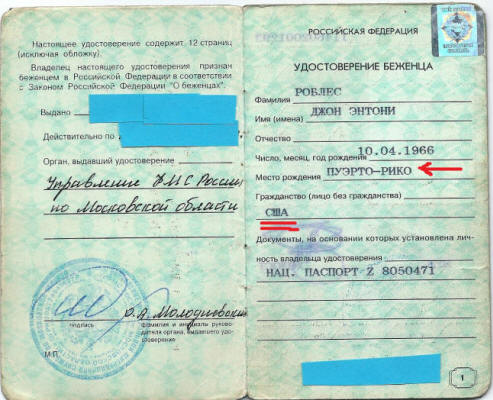 Настоящее удостоверение содержит 12 страниц
(исключая обложку).
Владелец настоящего удостоверения признан
беженцем в Российской Федерации в соответствии
с Законом Российской Федерации "О беженцах".
Выдано
Действительно по
Орган, выдавший удостоверение
Управление ФМС России
по Московской области
подпись
фамилия и инициалы руково-
дителя органа, выдавшего удо-
стоверение
М.П.
РОССИЙСКАЯ ФЕДЕРАЦИЯ
УДОСТОВЕРЕНИЕ БЕЖЕНЦА
РОБЛЕС
Фамилия
ДЖОН ЭНТОНИ
Имя (имена)
Отчество
10.04.1966
Число, месяц, год рождения
ПУЭРТО-РИКО
Место рождения
Гражданство (лицо без гражданства)
США
Документы, на основании которых установлена лич-
ность владельца удостоверения
НАЦ. ПАСПОРТ Z 8050471
1